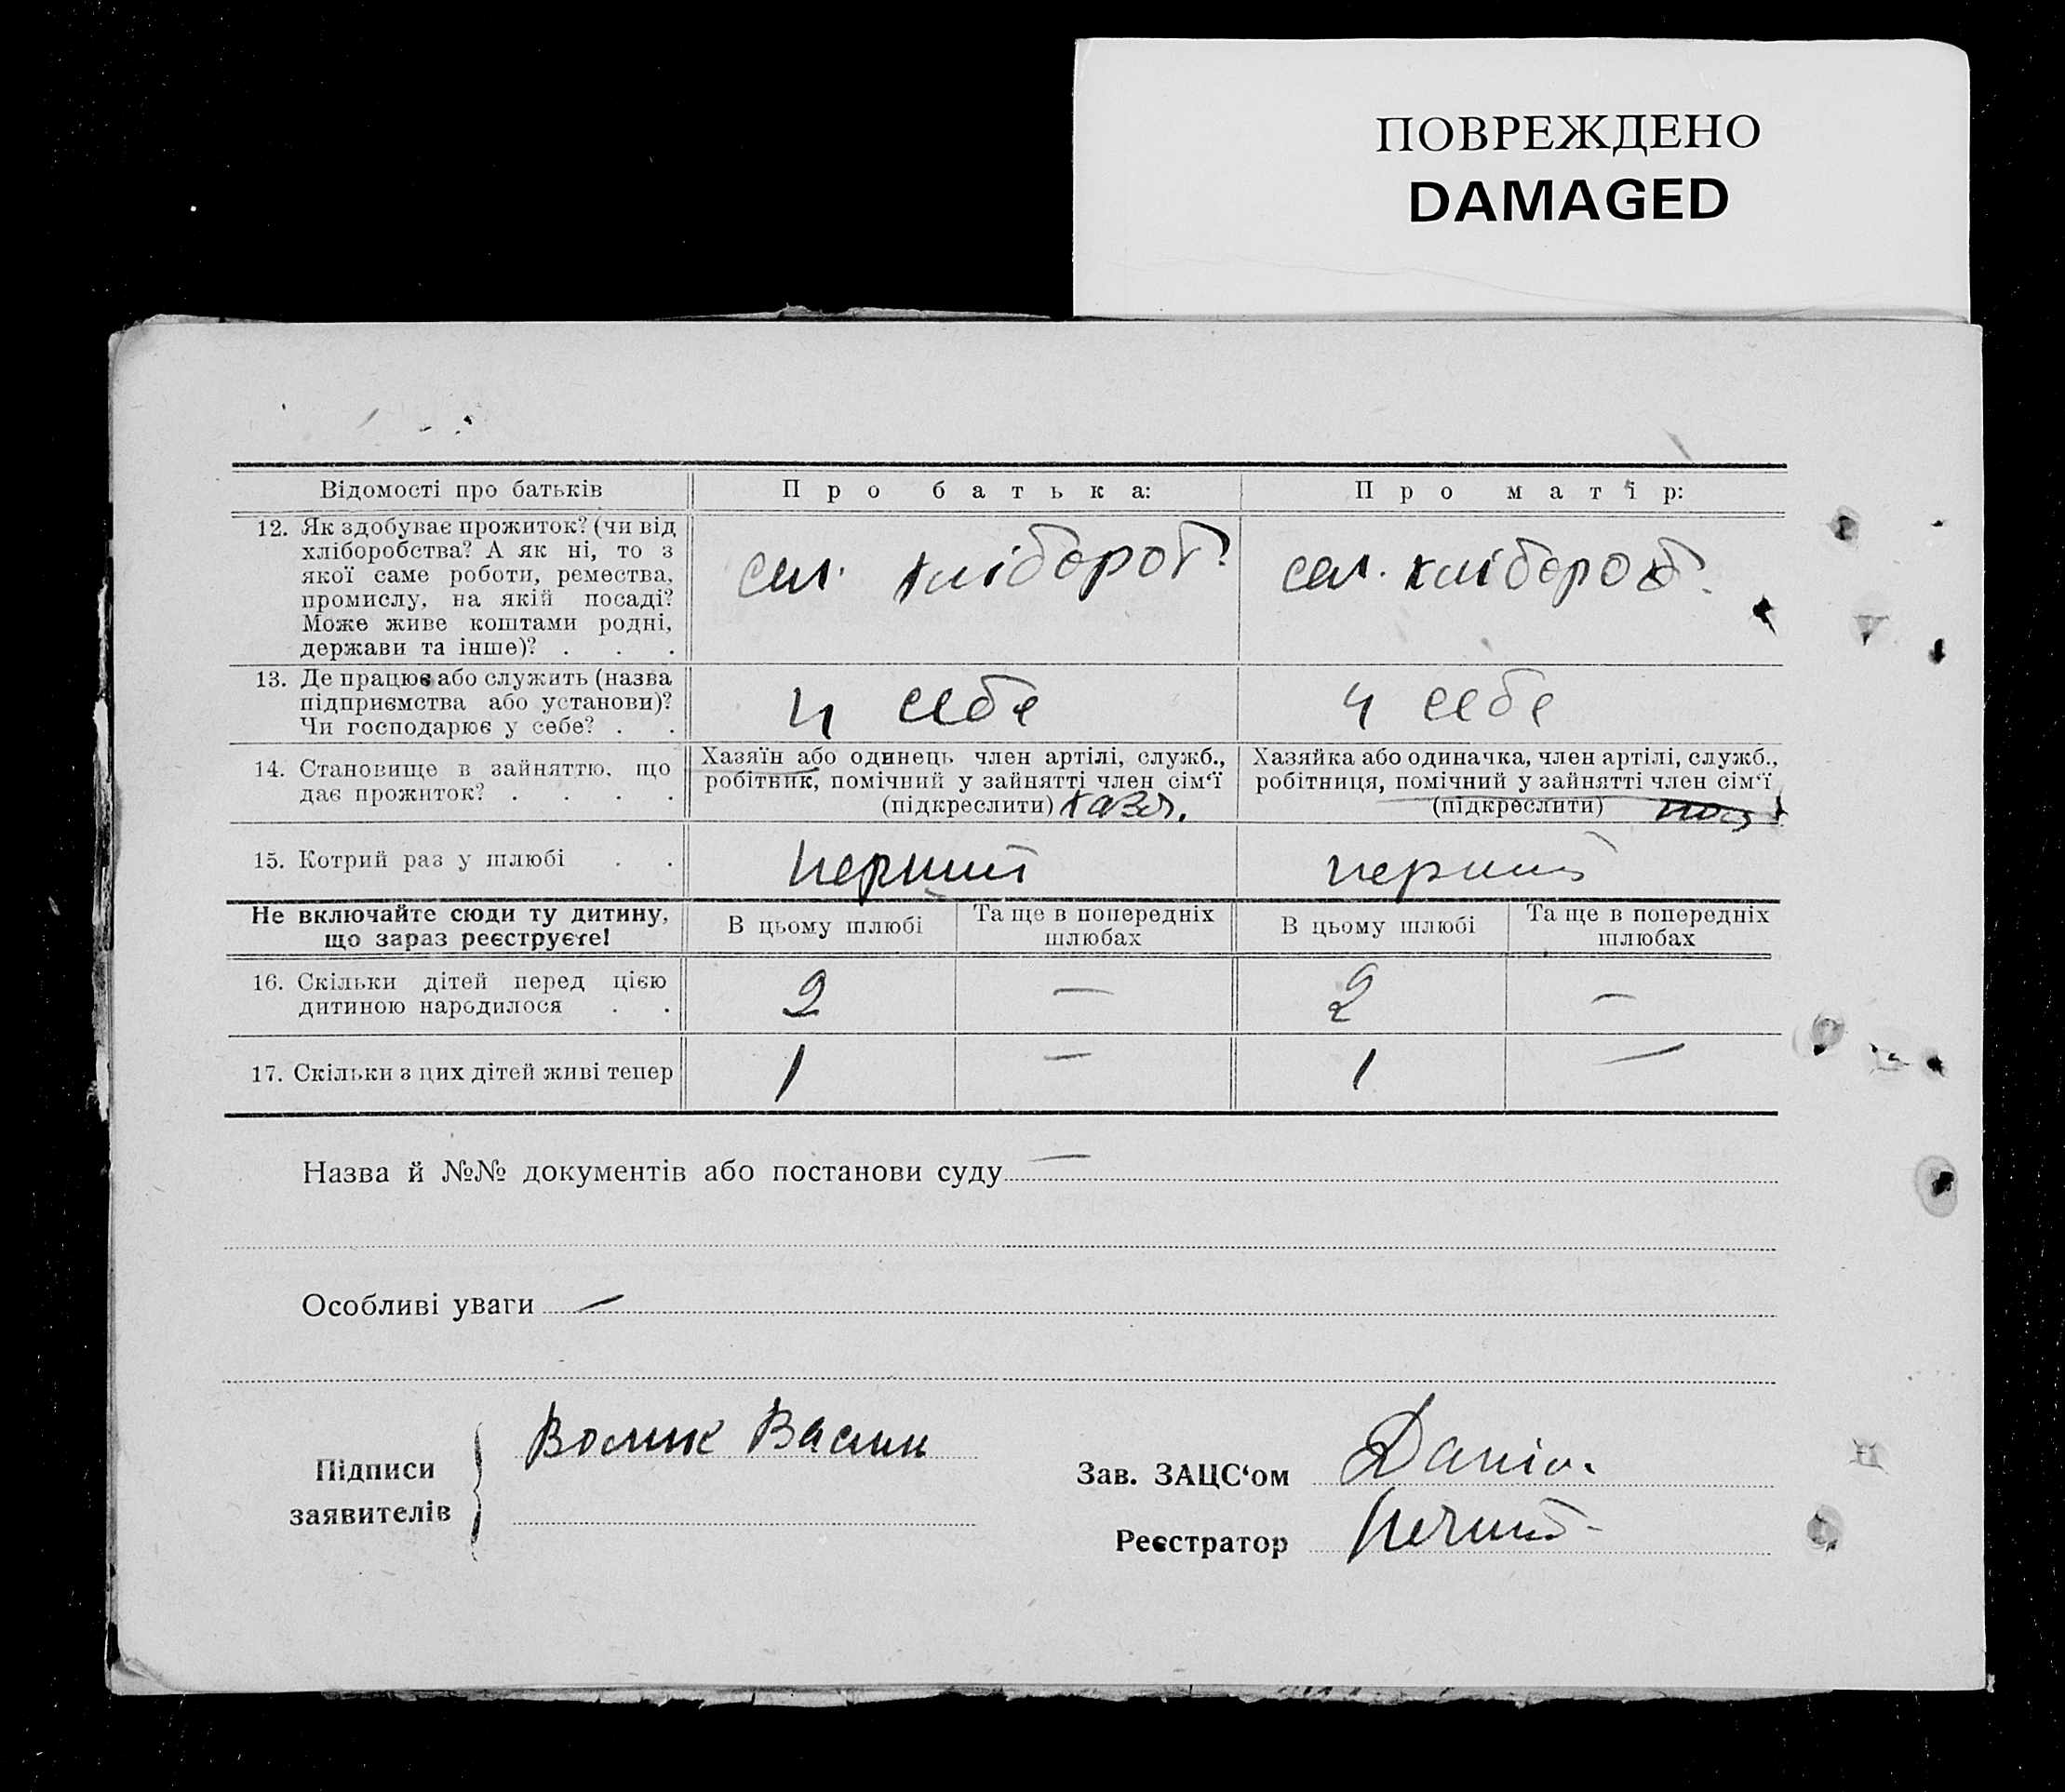 ПОВРЕЖДЕНО
DAMAGED
Відомості про батьків
Про батька:
Про матір:
12. Як здобуває прожиток? (чи від
хліборобства? А як ні, то з
якої саме роботи, ремества,
промислу, на якій посаді?
Може живе коштами родні,
держави та інше)? . . .
сел. хлібороб.
сел. хлібороб.
13. Де працює або служить (назва
підприємства або установи)?
Чи господарює у себе? . .
у себе
у себе
14. Становище в зайняттю, що
дає прожиток? . . . .
Хазяїн або одинець член артілі, служб.,
робітник, помічний у зайнятті член сім‘ї
(підкреслити) хазя.
Хазяйка або одиначка, член артілі, служб.,
робітниця, помічний у зайнятті член сім‘ї
(підкреслити)
15. Котрий раз у шлюбі . .
перший
перший
Не включайте сюди ту дитину,
що зараз реєструєте!
В цьому шлюбі
Та ще в попередніх
шлюбах
В цьому шлюбі
Та ще в попередніх
шлюбах
16. Скільки дітей перед цією
дитиною народилося . .
2
—
2
—
17. Скільки з цих дітей живі тепер
1
—
1
—
Назва й №№ документів або постанови суду —
Особливі уваги —
Підписи
заявителів
Волик Васил
Зав. ЗАЦС‘ом
Реєстратор